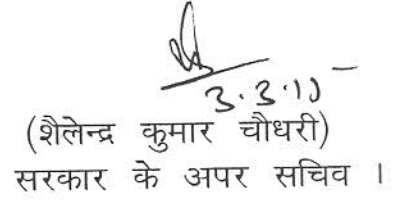 3.3.10
(शैलेन्द्र कुमार चौधरी)
सरकार के अपर सचिव ।